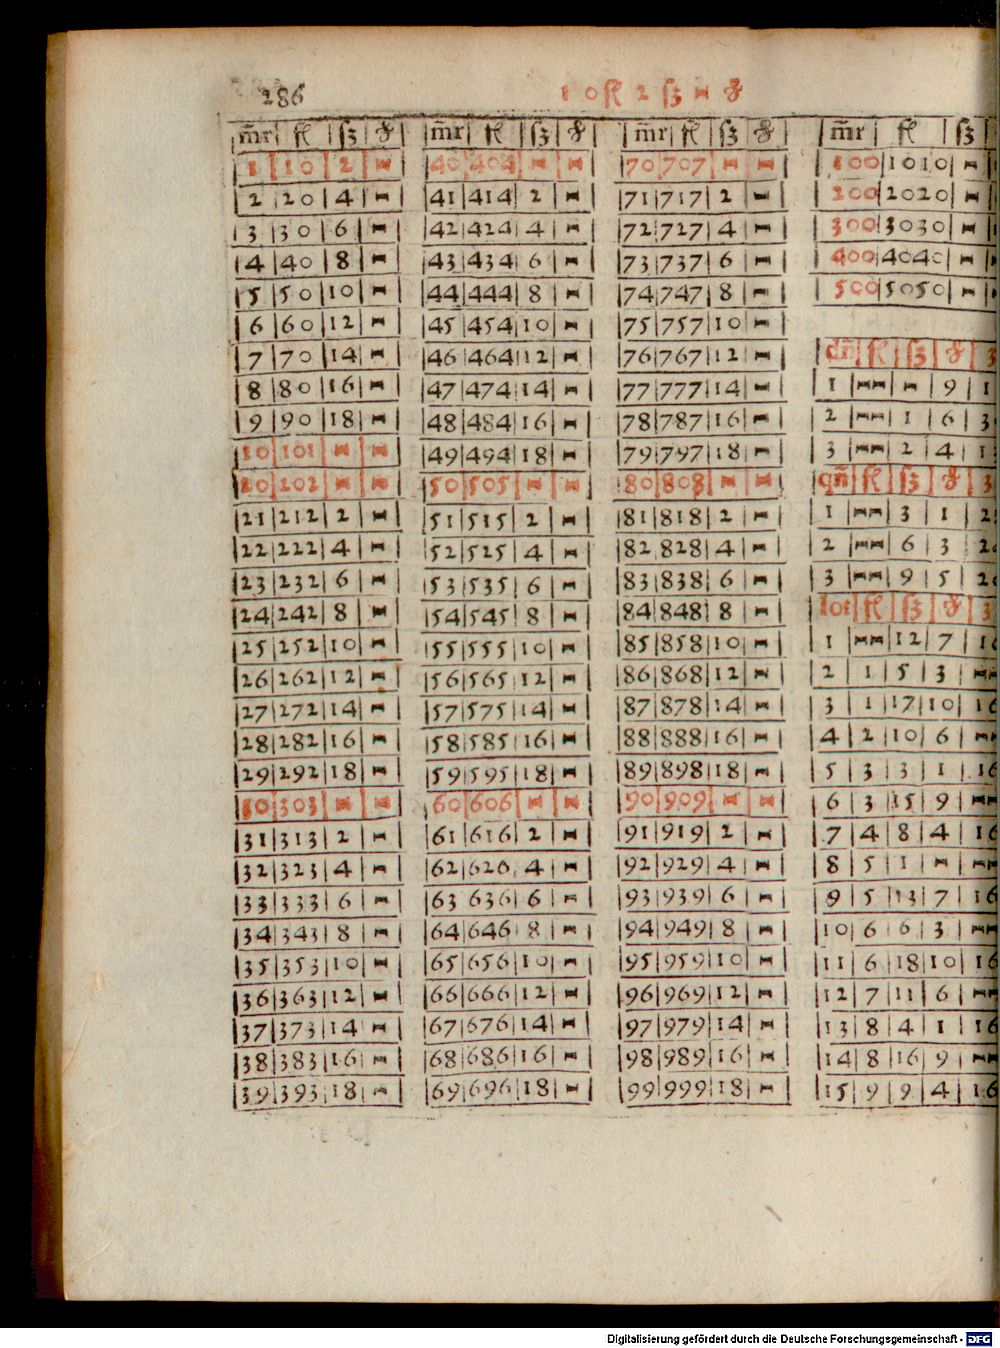 286
10 fl 2 ß - ₰
m̄r fl ß ₰
1 10 2 -
2 20 4 -
3 30 6 -
4 40 8 -
5 50 10 -
6 60 12 -
7 70 14 -
8 80 16 -
9 90 18 -
10 101 - -
20 202 - -
21 212 2 -
22 222 4 -
23 232 6 -
24 242 8 -
25 252 10 -
26 262 12 -
27 272 14 -
28 282 16 -
29 292 18 -
30 303 - -
31 313 2 -
32 323 4 -
33 333 6 -
34 343 8 -
35 353 10 -
36 363 12 -
37 373 14 -
38 383 16 -
39 393 18 -
m̄r fl ß ₰
40 404 - -
41 414 2 -
42 424 4 -
43 434 6 -
44 444 8 -
45 454 10 -
46 464 12 -
47 474 14 -
48 484 16 -
49 494 18 -
50 505 - -
51 515 2 -
52 525 4 -
53 535 6 -
54 545 8 -
55 555 10 -
56 565 12 -
57 575 14 -
58 585 16 -
59 595 18 -
60 606 - -
61 616 2 -
62 626 4 -
63 636 6 -
64 646 8 -
65 656 10 -
66 666 12 -
67 676 14 -
68 686 16 -
69 696 18 -
m̄r fl ß ₰
70 707 - -
71 717 2 -
72 727 4 -
73 737 6 -
74 747 8 -
75 757 10 -
76 767 12 -
77 777 14 -
78 787 16 -
79 797 18 -
80 808 - -
81 818 2 -
82 828 4 -
83 838 6 -
84 848 8 -
85 858 10 -
86 868 12 -
87 878 14 -
88 888 16 -
89 898 18 -
90 909 - -
91 919 2 -
92 929 4 -
93 939 6 -
94 949 8 -
95 959 10 -
96 969 12 -
97 979 14 -
98 989 16 -
99 999 18 -
m̄r fl ß
100 1010 -
200 2020 -
300 3030 -
400 4040 -
500 5050 -
dn̄ fl ß ₰ 3
1 -- - 9 1
2 -- 1 6 3
3 -- 2 4 1
qn̄ fl ß ₰ 3
1 -- 3 1 2
2 -- 6 3 2
3 -- 9 5 2
lot fl ß ₰ 3
1 -- 12 7 16
2 1 5 3 --
3 1 17 10 16
4 2 10 6 --
5 3 3 1 16
6 3 15 9 --
7 4 8 4 16
8 5 1 - --
9 5 13 7 16
10 6 6 3 --
11 6 18 10 16
12 7 11 6 --
13 8 4 1 16
14 8 16 9 --
15 9 9 4 16
Digitalisierung gefördert durch die Deutsche Forschungsgemeinschaft - DFG